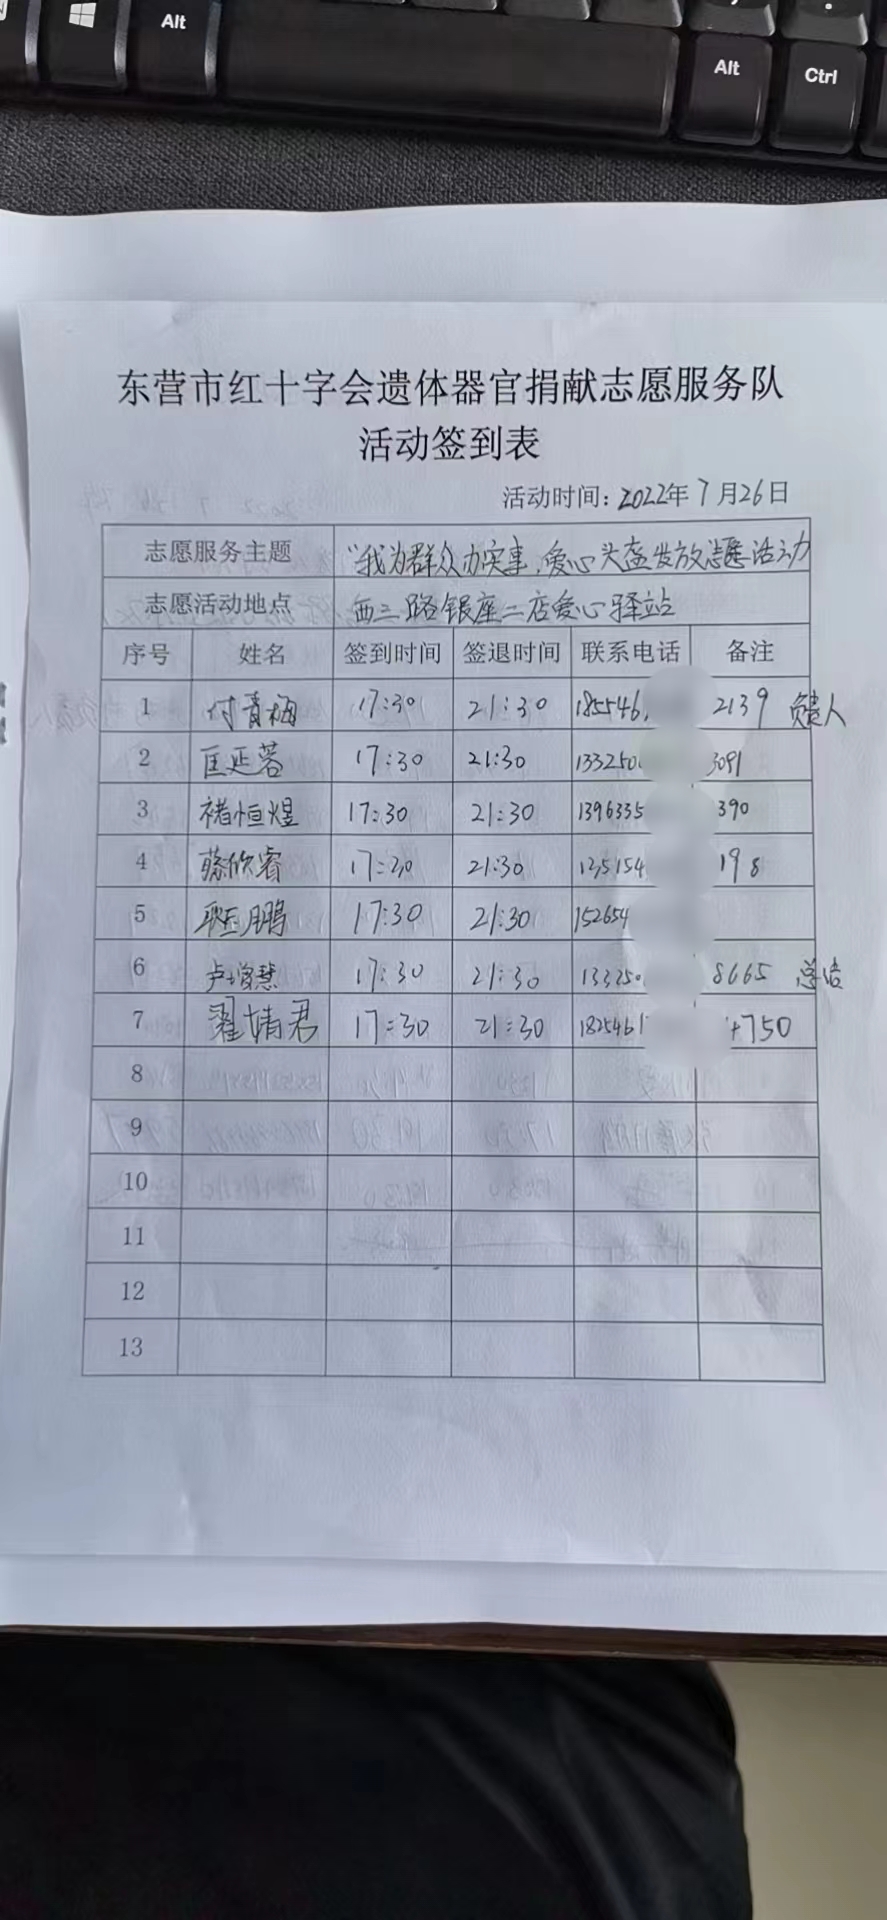 Alt
Alt
Ctrl
东营市红十字会遗体器官捐献志愿服务队
活动签到表
活动时间：2022年7月26日
志愿服务主题 "我为群众办实事，爱心头盔发放志愿活动
志愿活动地点 西三路银座二店爱心驿站
序号 姓名 签到时间 签退时间 联系电话 备注
1 付青梅 17:30 21:30 185546 2139 负责人
2 匡延蓉 17:30 21:30 133250 3091
3 褚恒煜 17:30 21:30 1396335 390
4 藤欣睿 17:30 21:30 135154 198
5 鹏 17:30 21:30 152654
6 卢增慧 17:30 21:30 133250 8665 总结
7 翟婧君 17:30 21:30 1825461 750
8
9
10
11
12
13